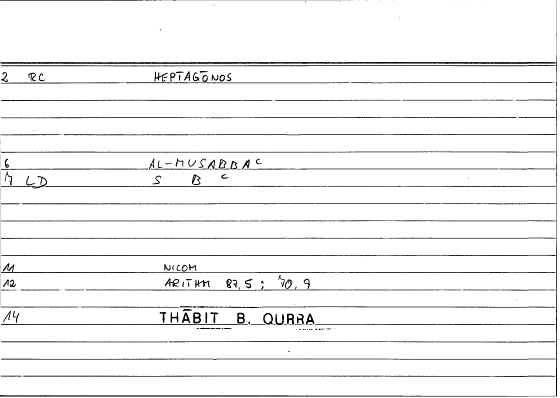 2 RC HEPTAGŌNOS
6 AL-MUSABBAᶜ
7 LD S B ᶜ
11 NICOM
12 ARITHM 87,5 ; 70,9
14 THĀBIT B. QURRA